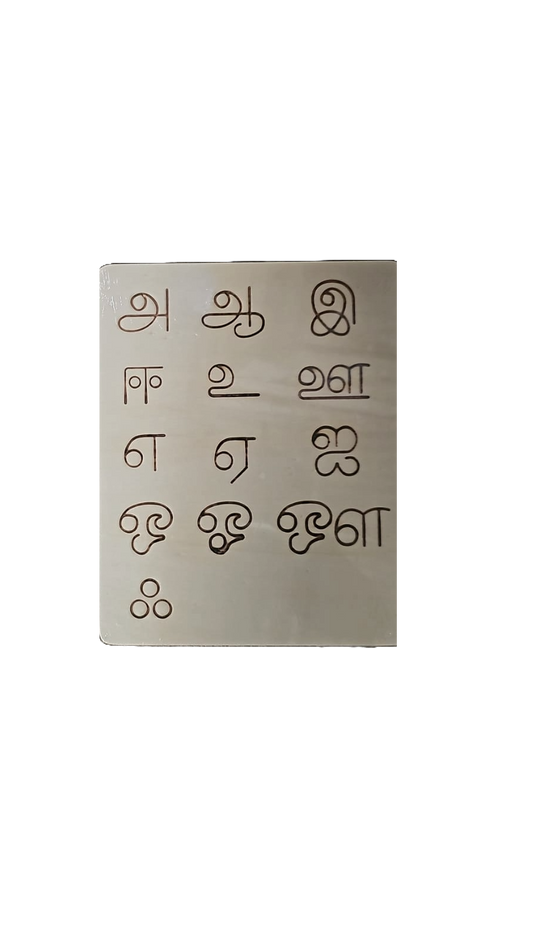 அ ஆ இ
ஈ உ ஊ
எ ஏ ஐ
ஒ ஓ ஔ
ஃ